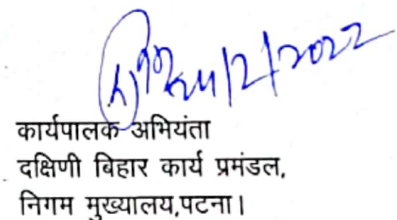 24/2/2022
कार्यपालक अभियंता
दक्षिणी बिहार कार्य प्रमंडल,
निगम मुख्यालय,पटना।